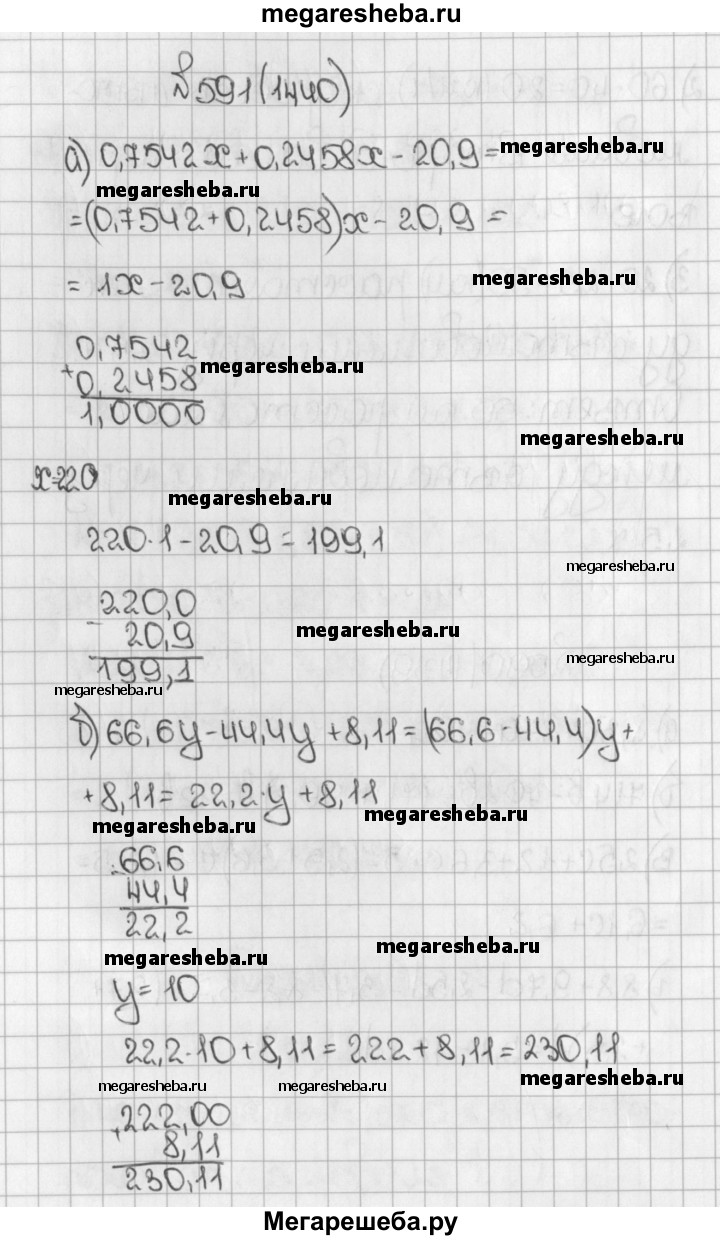 megaresheba.ru
№591(1440)
а) 0,7542x+0,2458x-20,9= megaresheba.ru
megaresheba.ru
=(0,7542+0,2458)x-20,9=
=1x-20,9 megaresheba.ru
0,7542
+0,2458 megaresheba.ru
1,0000
megaresheba.ru
x=220
megaresheba.ru
220·1-20,9=199,1
megaresheba.ru
220,0
- 20,9 megaresheba.ru
199,1 megaresheba.ru
megaresheba.ru
б) 66,6y-44,4y+8,11=(66,6-44,4)y+
+8,11=22,2·y+8,11
megaresheba.ru megaresheba.ru
-66,6
44,4
22,2
megaresheba.ru megaresheba.ru
y=10
22,2·10+8,11=222+8,11=230,11
megaresheba.ru megaresheba.ru megaresheba.ru
+222,00
8,11
230,11
Мегарешеба.ру